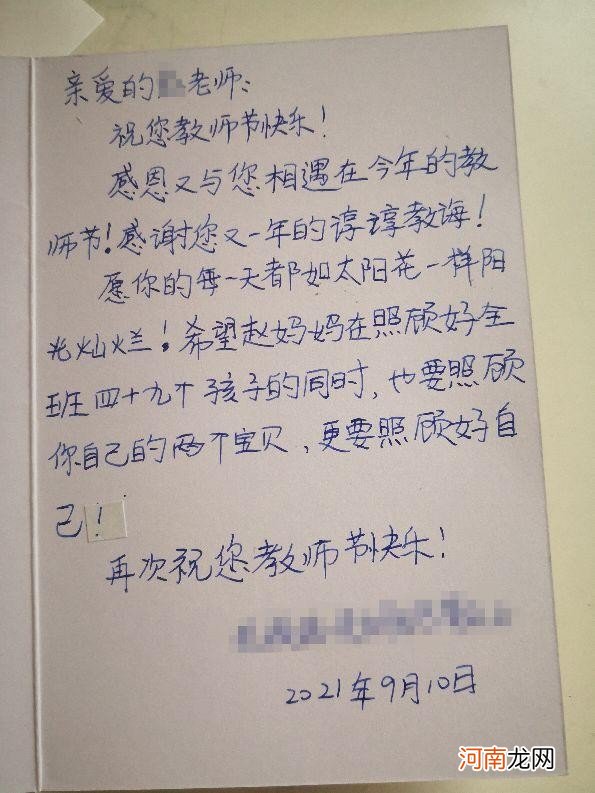 亲爱的 老师：
祝您教师节快乐！
感恩又与您相遇在今年的教
师节！感谢您又一年的谆谆教诲！
愿你的每一天都如太阳花一样阳
光灿烂！希望赵妈妈在照顾好全
班四十九个孩子的同时，也要照顾
你自己的两个宝贝，更要照顾好自
己！
再次祝您教师节快乐！
2021年9月10日
河南龙网